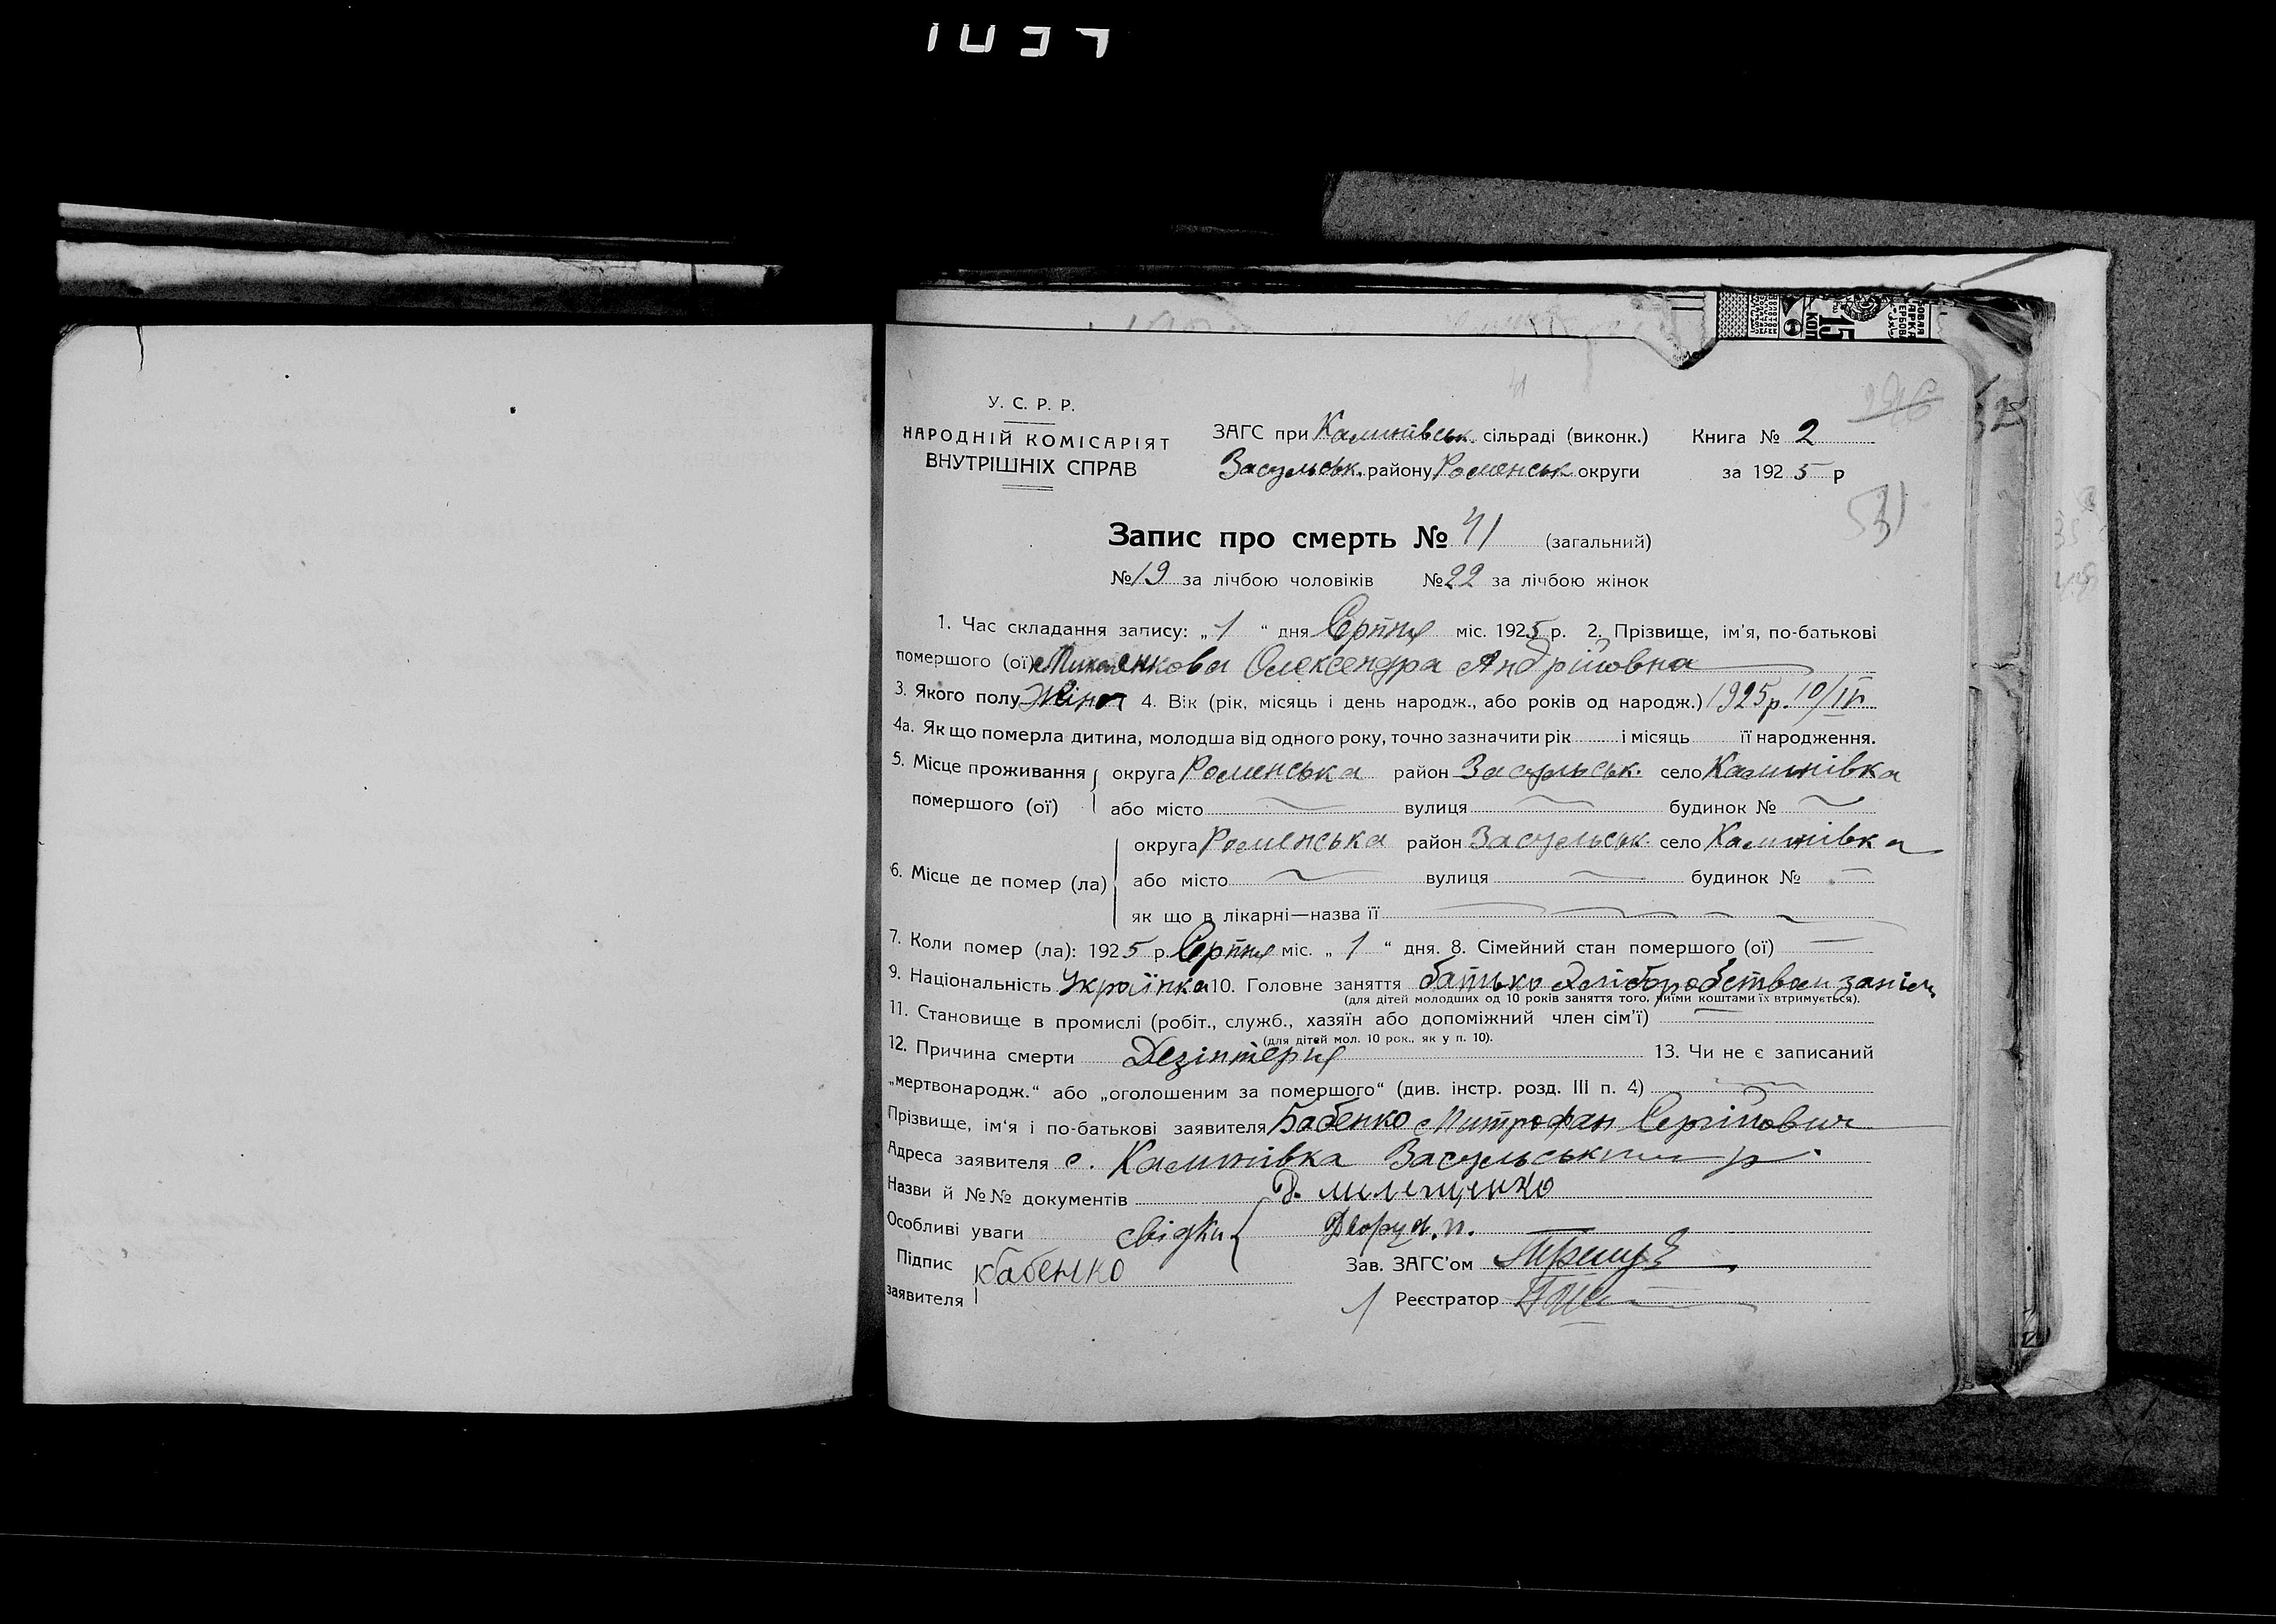 У. С. Р. Р.
НАРОДНІЙ КОМІСАРІЯТ
ВНУТРІШНІХ СПРАВ
ЗАГС при Калинівськ. сільраді (виконк.) Книга № 2
Засульськ. району Роменськ округи за 1925 р
531
Запис про смерть № 41 (загальний)
№ 19 за лічбою чоловіків № 22 за лічбою жінок
1. Час складання запису: „ 1 “ дня Серпня міс. 1925 р. 2. Прізвище, ім'я, по-батькові
помершого (ої) Олександра Андріювна
3. Якого полу Жіноч 4. Вік (рік, місяць і день народж., або років од народж.) 1925 р. 10/IV
4а. Як що померла дитина, молодша від одного року, точно зазначити рік і місяць її народження.
5. Місце проживання округа Роменська район Засульськ. село Калинівка
помершого (ої) або місто вулиця будинок №
округа Роменська район Засульськ. село Калинівка
6. Місце де помер (ла) або місто вулиця будинок №
як що в лікарні—назва її
7. Коли помер (ла): 1925 р. Серпня міс. „ 1 “ дня. 8. Сімейний стан помершого (ої)
9. Національність Українка 10. Головне заняття батько хліборобством
(для дітей молодших од 10 років заняття того, чиїми коштами їх втримується).
11. Становище в промислі (робіт., служб., хазяїн або допоміжний член сім'ї)
(для дітей мол. 10 рок., як у п. 10).
12. Причина смерти Дезінтерия 13. Чи не є записаний
„мертвонародж.“ або „оголошеним за помершого“ (див. інстр. розд. III п. 4)
Прізвище, ім'я і по-батькові заявителя Бабенко Митрофан Сергійович
Адреса заявителя с. Калинівка Засульського р.
Назви й №№ документів
Особливі уваги свідки
Підпис Бабенко Зав. ЗАГС'ом
заявителя Реєстратор